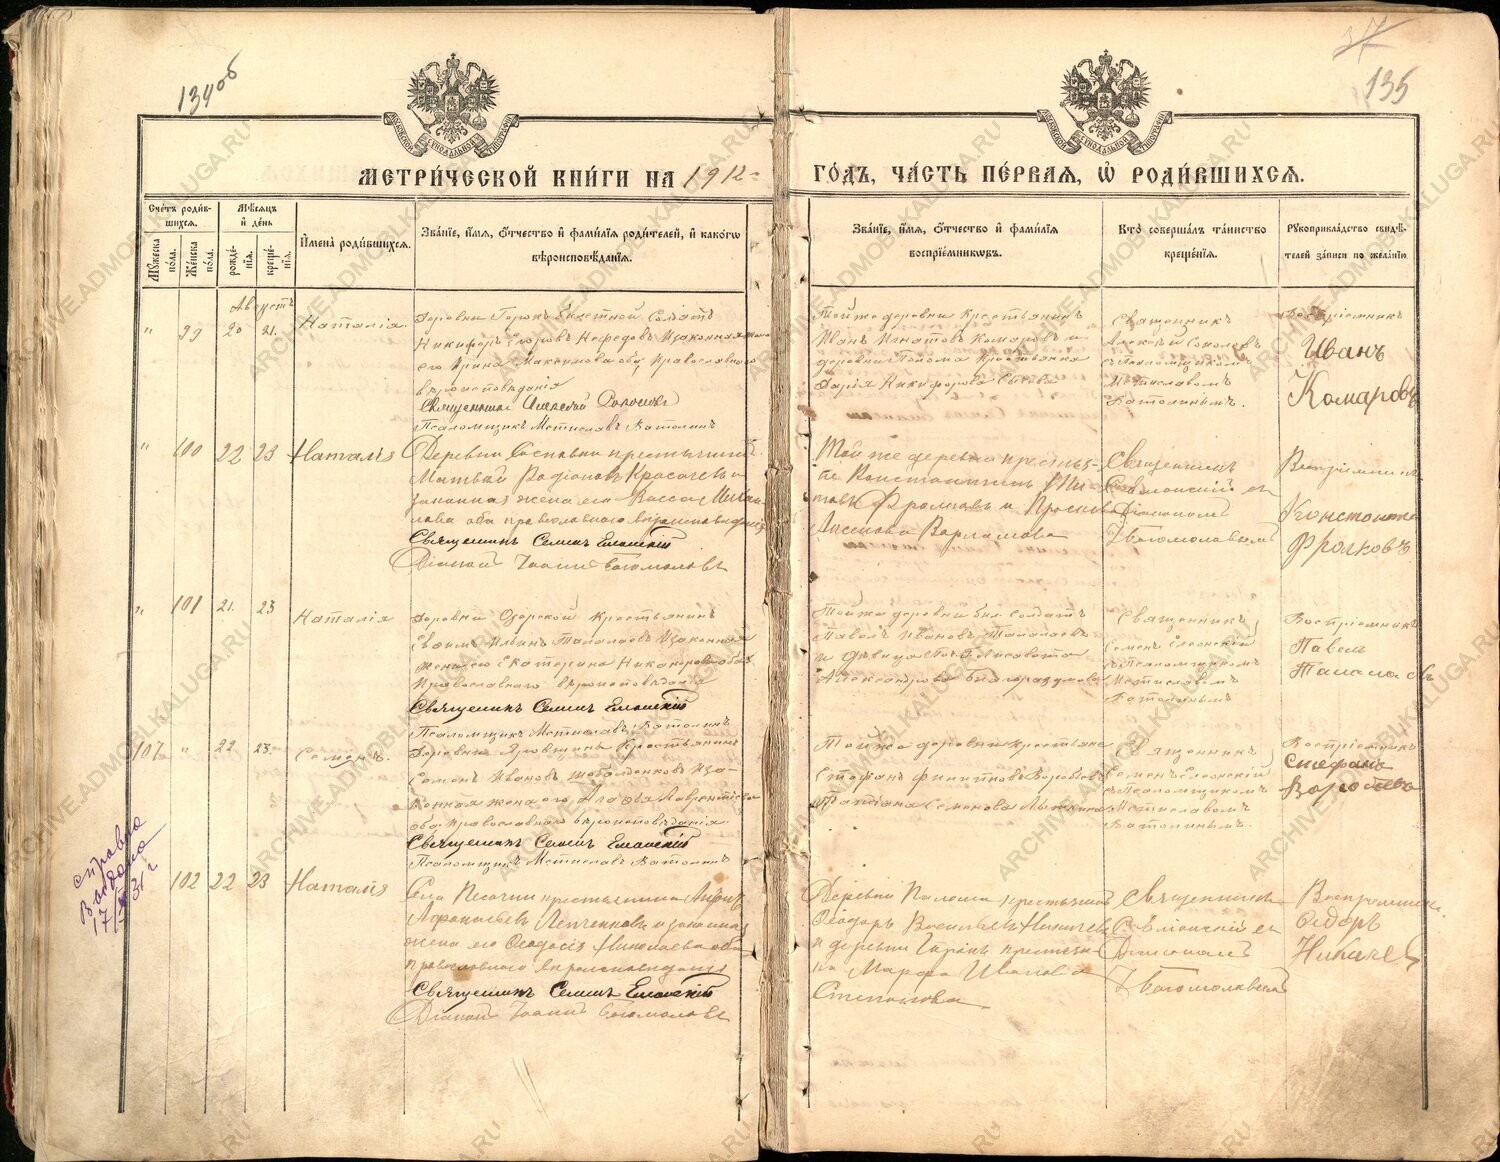 134об
37
135
МЕТРИ́ЧЕСКОЙ КНИ́ГИ НА 1912
ГО́ДЪ, ЧА́СТЬ ПЕ́РВАЯ, Ѡ҆ РОДИ́ВШИХСЯ.
Сче́тъ роди́в-
шихся.
Му́жеска по́ла.
Же́нска по́ла.
Мѣ́сяцъ
и҆ де́нь
рожде́-
нія.
креще́-
нія.
И҆мена̀ роди́вшихся.
Зва́ніе, и҆́мя, ѻ҆́тчество и҆ фами́лія роди́телей, и҆ како́гѡ
вѣроисповѣ́данія.
Зва́ніе, и҆́мя, ѻ҆́тчество и҆ фами́лія
воспріе́мниковъ.
Кто̀ соверша́лъ та́инство
креще́нія.
Рукоприкла́дство свидѣ́-
телей за́писи по жела́нію.
Августъ
" 99 20 21. Наталія
Деревни Горокъ билетной Солдатъ
Никифоръ Егоровъ Нефедовъ и законная жена
его Ирина Максимова оба Православнаго
вѣроисповѣданія
Священникъ Алексѣй Соколовъ
Псаломщикъ Мстиславъ Ватолинъ
Тойже деревни Крестьянинъ
Иванъ Игнатовъ Комаровъ и
деревни Крестьянка
Дарія Никифорова
Священникъ
Алексѣй Соколовъ
съ Псаломщикомъ
Мстиславомъ
Ватолинымъ.
Воспріемникъ
Иванъ
Комаровъ
" 100 22 23 Наталія
Деревни Сосновки крестьянинъ
Матвѣй Родіоновъ Красичевъ и
законная жена его Васса Михаи-
лова оба православнаго вѣроисповѣданія
Священникъ Семенъ Елеонскій
Діаконъ Іоаннъ Богомоловъ
Той же деревни крестья-
не Константинъ Ти-
товъ Фролковъ и
Варламова
Священникъ
С. Елеонскій съ
Діакономъ
І. Богомоловымъ
Воспріемникъ
Константинъ
Фролковъ
" 101 21. 23 Наталія
Деревни Озерской Крестьянинъ
Евѳимъ Ильинъ Талалаевъ и законная
жена его Екатерина Никанорова оба
Православнаго вѣроисповѣданія
Священникъ Семенъ Елеонскій
Псаломщикъ Мстиславъ Ватолинъ
Тойже деревни бил. солдатъ
Павелъ Ивановъ Талалаевъ
и дѣвица Елисавета
Александрова Благоразумова
Священникъ
Семенъ Елеонскій
съ Псаломщикомъ
Мстиславомъ
Ватолинымъ
Воспріемникъ
Павелъ
Талалаевъ
107 " 22 23. Семенъ.
Деревни Яровщины Крестьянинъ
Семенъ Ивановъ и за-
конная жена его Агафія Лаврентіева
оба Православнаго вѣроисповѣданія.
Священникъ Семенъ Елеонскій
Псаломщикъ Мстиславъ Ватолинъ
Тойже деревни крестьяне
Стефанъ Филипповъ Воробьевъ
Татіана Семенова
Священникъ
Семенъ Елеонскій
съ Псаломщикомъ
Мстиславомъ
Ватолинымъ
Воспріемникъ
Стефанъ
Воробьевъ
справка
выдана
17/ 31 г
102 22 23 Наталія
Села Песочни крестьянинъ
Афанасьевъ и законная
жена его Ѳеодосія Николаева оба
православнаго вѣроисповѣданія
Священникъ Семенъ Елеонскій
Діаконъ Іоаннъ Богомоловъ
Деревни крестьянинъ
Ѳеодоръ Васильевъ
и деревни крестьян-
ка Марфа Иванова
Степанова
Священникъ
С. Елеонскій съ
Діакономъ
І. Богомоловымъ
Воспріемникъ
Ѳедоръ